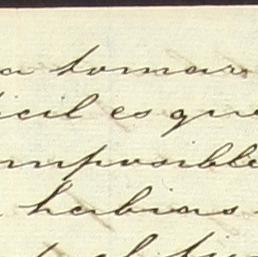 a tomar
icil es que
imposible
habias